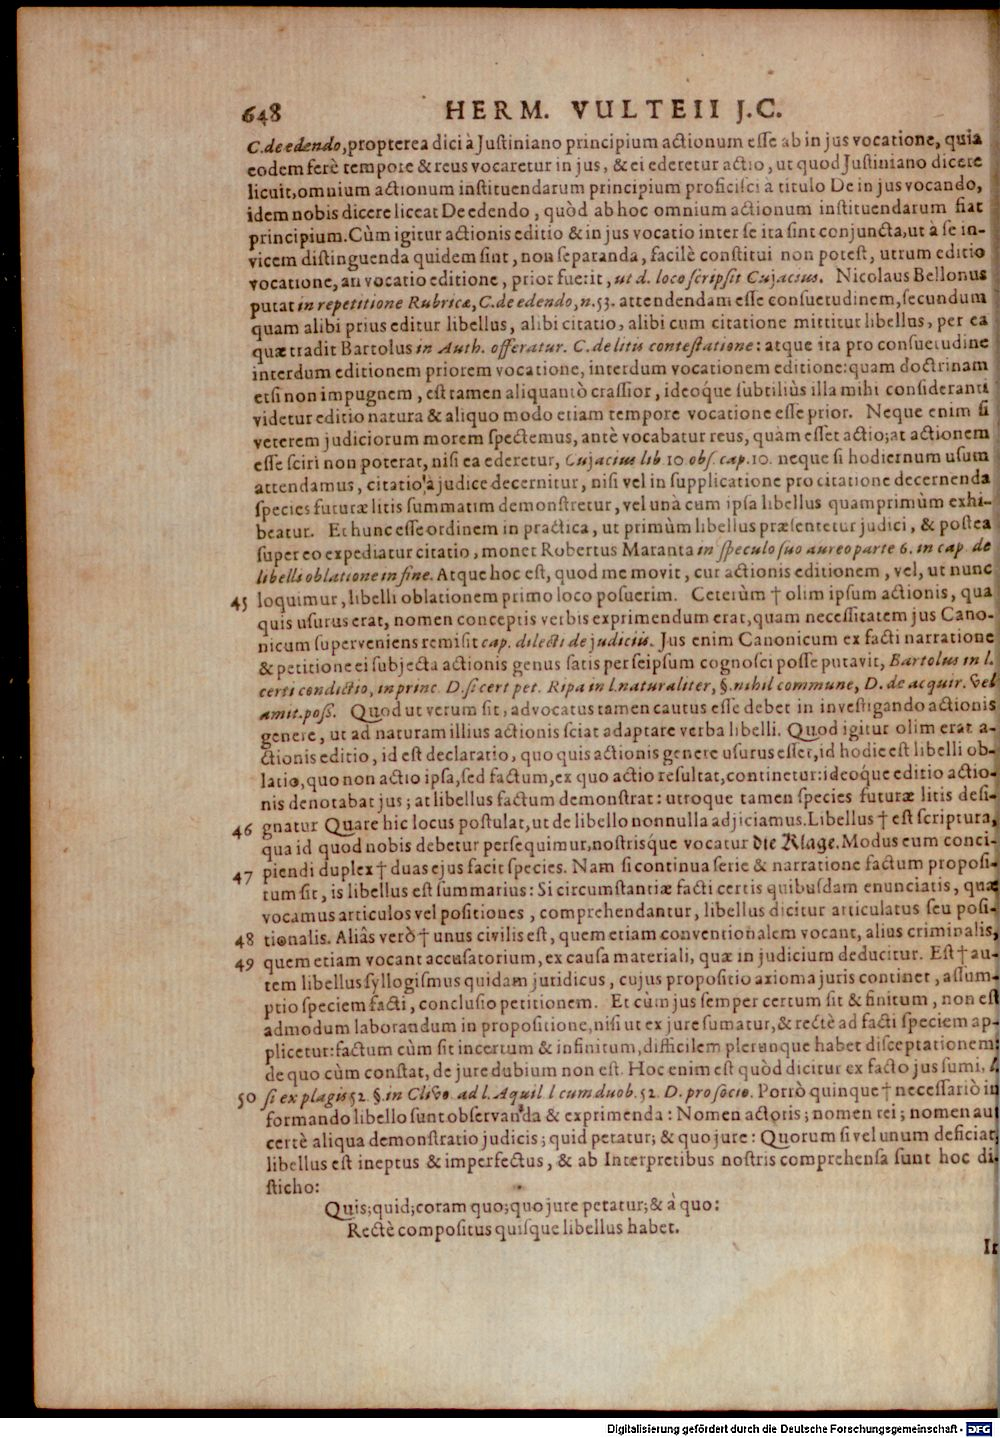 648 HERM. VULTEII J.C.
C. de edendo, propterea dici à Justiniano principium actionum esse ab in jus vocatione, quia
eodem ferè tempore & reus vocaretur in jus, & ei ederetur actio, ut quod Justiniano dicere
licuit, omnium actionum instituendarum principium proficisci à titulo De in jus vocando,
idem nobis dicere liceat De edendo, quòd ab hoc omnium actionum instituendarum fiat
principium. Cùm igitur actionis editio & in jus vocatio inter se ita sint conjuncta, ut à se in-
vicem distinguenda quidem sint, non separanda, facilè constitui non potest, utrum editio
vocatione, an vocatio editione, prior fuerit, ut d. loco scripsit Cujacius. Nicolaus Bellonus
putat in repetitione Rubricæ, C. de edendo, n. 53. attendendam esse consuetudinem, secundum
quam alibi prius editur libellus, alibi citatio, alibi cum citatione mittitur libellus, per ea
quæ tradit Bartolus in Auth. offeratur. C. de litis contestatione: atque ita pro consuetudine
interdum editionem priorem vocatione, interdum vocationem editione: quam doctrinam
etsi non impugnem, est tamen aliquantò crassior, ideoque subtiliùs illa mihi consideranti
videtur editio natura & aliquo modo etiam tempore vocatione esse prior. Neque enim si
veterem judiciorum morem spectemus, antè vocabatur reus, quàm esset actio; at actionem
esse sciri non poterat, nisi ea ederetur, Cujacius lib. 10 obs. cap. 10. neque si hodiernum usum
attendamus, citatio à judice decernitur, nisi vel in supplicatione pro citatione decernenda
species futuræ litis summatim demonstretur, vel unà cum ipsa libellus quamprimùm exhi-
beatur. Et hunc esse ordinem in practica, ut primùm libellus præsentetur judici, & postea
super eo expediatur citatio, monet Robertus Maranta in speculo suo aureo parte 6. in cap. de
libelli oblatione in fine. Atque hoc est, quod me movit, cur actionis editionem, vel, ut nunc
45 loquimur, libelli oblationem primo loco posuerim. Ceterùm † olim ipsum actionis, qua
quis usurus erat, nomen conceptis verbis exprimendum erat, quam necessitatem jus Cano-
nicum superveniens remisit cap. dilecti de judiciis. Jus enim Canonicum ex facti narratione
& petitione ei subjecta actionis genus satis per seipsum cognosci posse putavit, Bartolus in l.
certi condictio, in princ. D. si cert pet. Ripa in l. naturaliter, §. nihil commune, D. de acquir. vel
amit. poss. Quod ut verum sit, advocatus tamen cautus esse debet in investigando actionis
genere, ut ad naturam illius actionis sciat adaptare verba libelli. Quod igitur olim erat a-
ctionis editio, id est declaratio, quo quis actionis genere usurus esset, id hodie est libelli ob-
latio, quo non actio ipsa, sed factum, ex quo actio resultat, continetur: ideoque editio actio-
nis denotabat jus; at libellus factum demonstrat: utroque tamen species futuræ litis desi-
46 gnatur Quare hic locus postulat, ut de libello nonnulla adjiciamus. Libellus † est scriptura,
qua id quod nobis debetur persequimur, nostrisque vocatur die Klage. Modus eum conci-
47 piendi duplex † duas ejus facit species. Nam si continua serie & narratione factum proposi-
tum sit, is libellus est summarius: Si circumstantiæ facti certis quibusdam enunciatis, quæ
vocamus articulos vel positiones, comprehendantur, libellus dicitur articulatus seu posi-
48 tionalis. Aliâs verò † unus civilis est, quem etiam conventionalem vocant, alius criminalis,
49 quem etiam vocant accusatorium, ex causa materiali, quæ in judicium deducitur. Est † au-
tem libellus syllogismus quidam juridicus, cujus propositio axioma juris continet, assum-
ptio speciem facti, conclusio petitionem. Et cùm jus semper certum sit & finitum, non est
admodum laborandum in propositione, nisi ut ex jure sumatur, & rectè ad facti speciem ap-
plicetur: factum cùm sit incertum & infinitum, difficilem plerunque habet disceptationem:
de quo cùm constat, de jure dubium non est. Hoc enim est quòd dicitur ex facto jus sumi, l.
50 si ex plagis 52. §. in Clivo. ad l. Aquil. l. cum duob. 52. D. pro socio. Porrò quinque † necessariò in
formando libello sunt observanda & exprimenda: Nomen actoris; nomen rei; nomen aut
certè aliqua demonstratio judicis; quid petatur; & quo jure: Quorum si vel unum deficiat,
libellus est ineptus & imperfectus, & ab Interpretibus nostris comprehensa sunt hoc di-
sticho:
Quis; quid; coram quo; quo jure petatur; & à quo:
Rectè compositus quisque libellus habet.
Digitalisierung gefördert durch die Deutsche Forschungsgemeinschaft - DFG